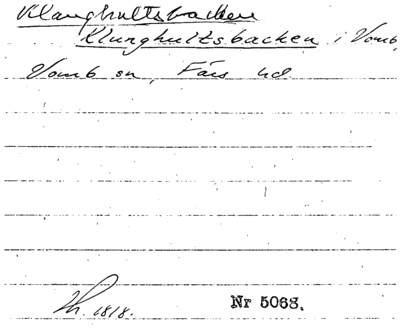 Klanghultsbacken
Klunghultsbacken i Vomb,
Vomb sn, Färs hd
Th. 1818.
Nr 5068.